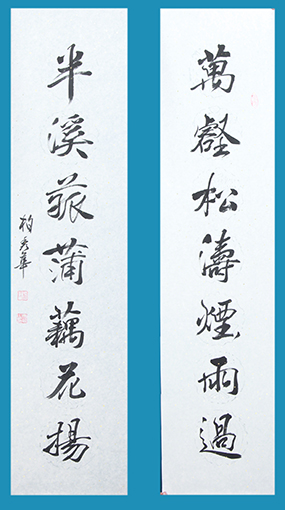 萬壑松濤煙雨過
半溪菰蒲藕花揚